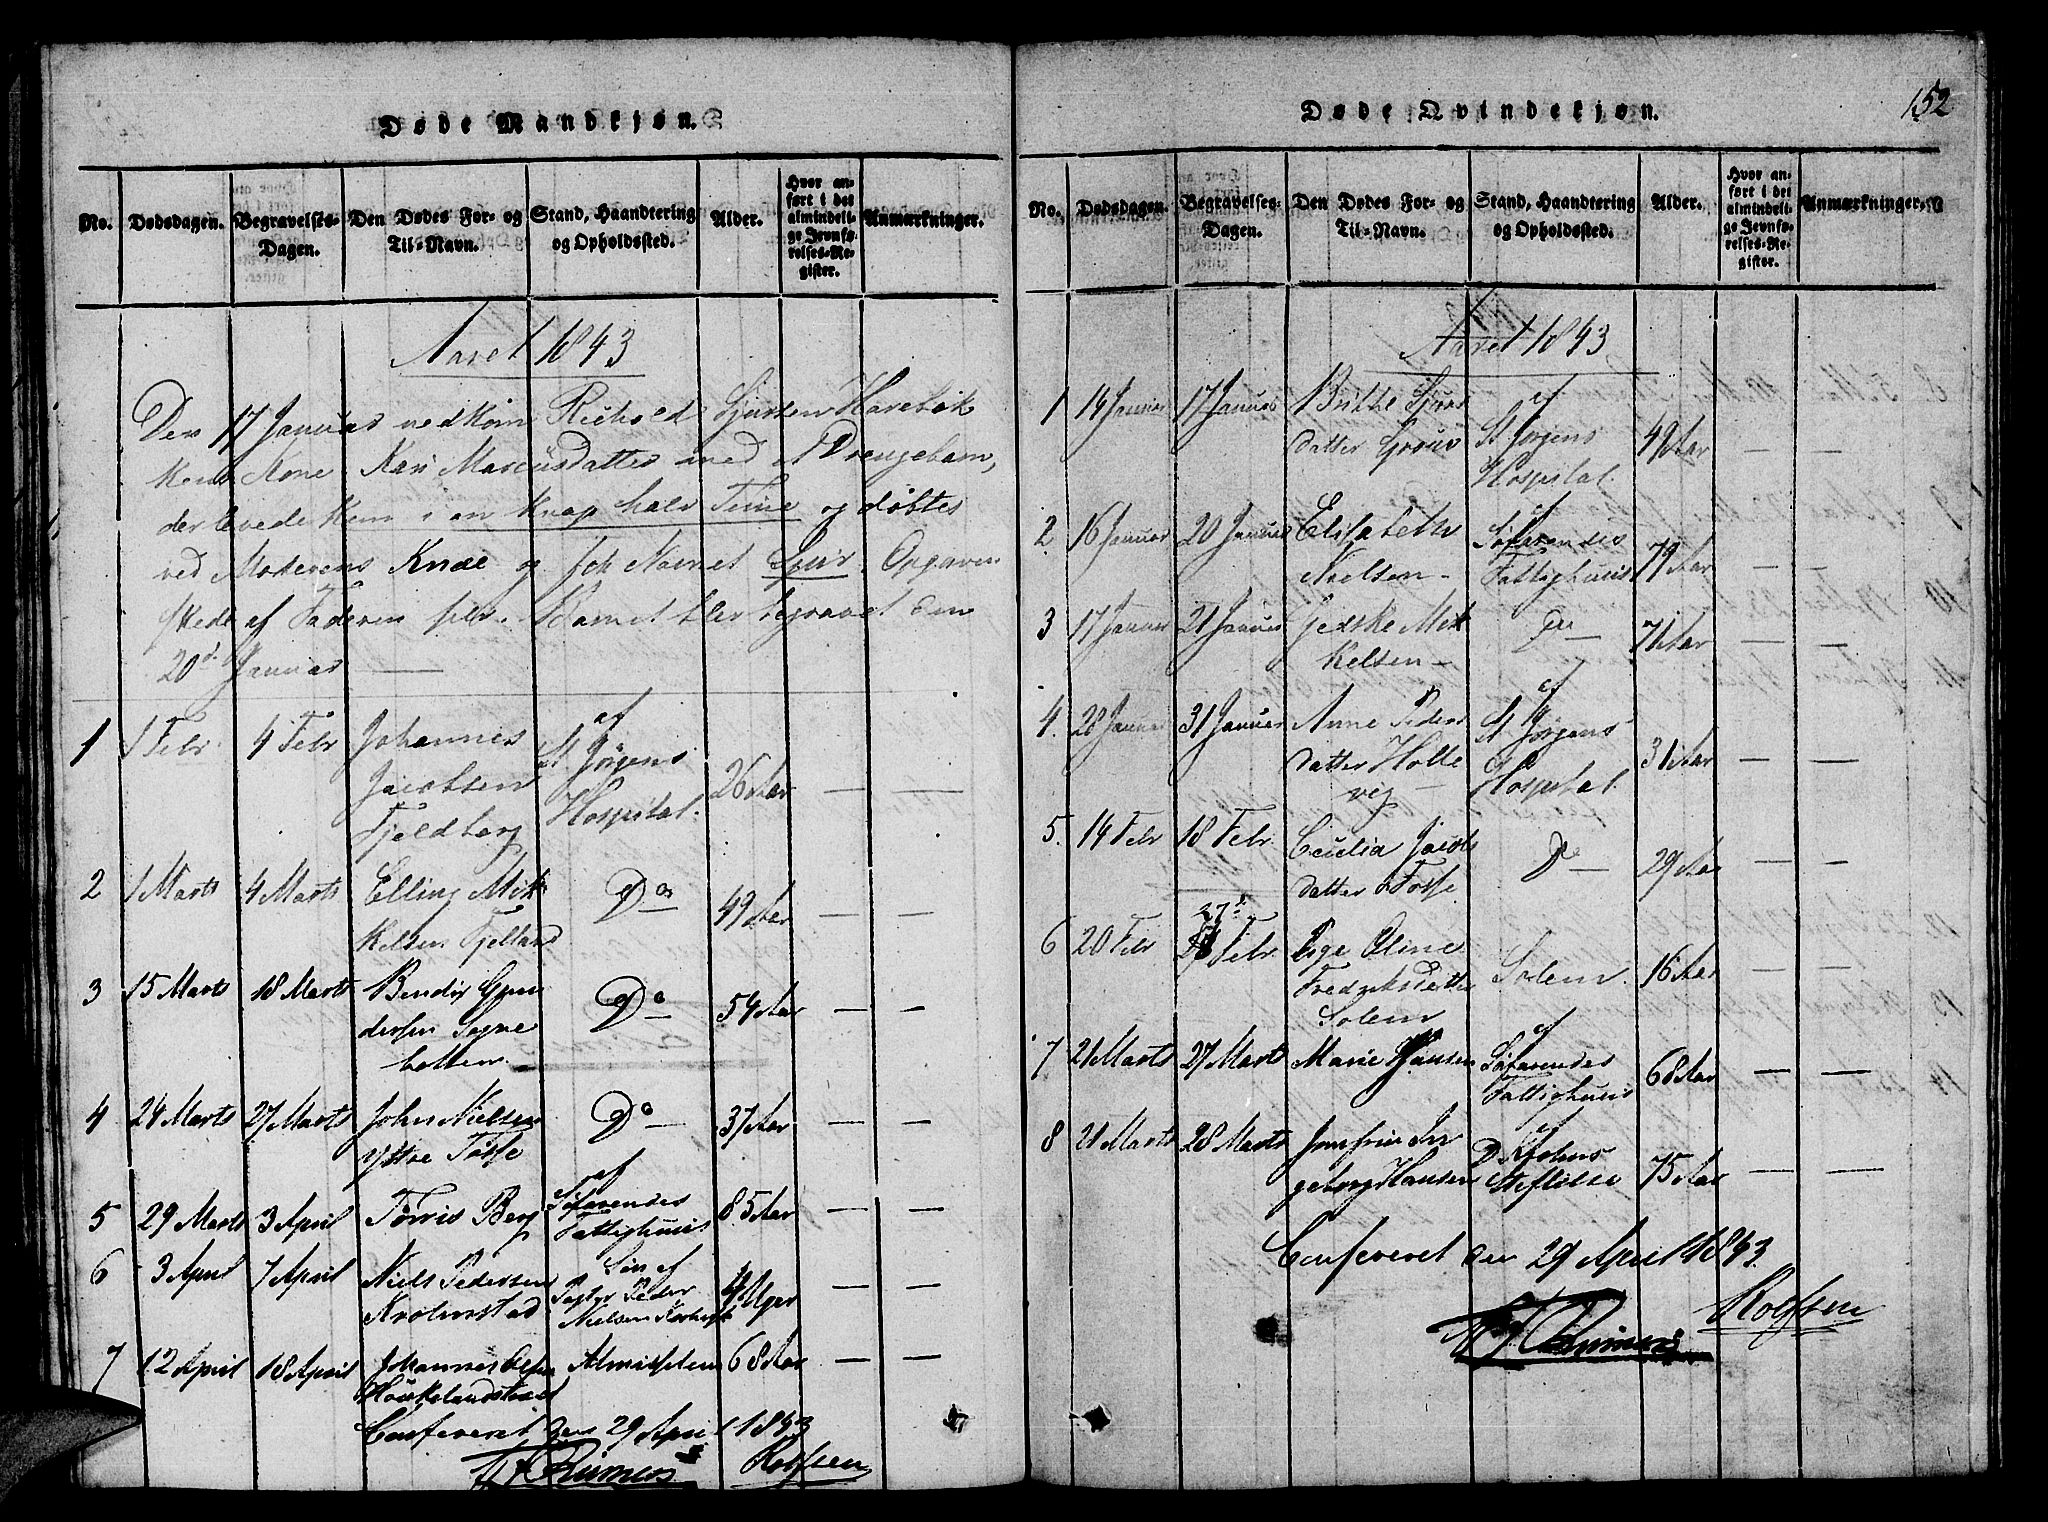 Døde Mandkjøn.
No.
Dødsdagen.
Begravelses-
Dagen.
Den Dødes For- og
Til-Navn.
Stand, Haandtering
og Opholdssted.
Alder.
Hvor an-
ført i det
almindeli-
ge Jevnfø-
relses-Re-
gister.
Anmærkninger.
Aaret 1843
Den 17 Januar nedkom
Kone Kari Marcusdatter med et Drengebarn,
der levede kun i en knap halv Time og døbtes
ved Moderens Knæ og fik Navnet Sjur. Opgaven
skede af Faderen selv. Barnet blev begravet den
20d Januar —
1 1 Febr 4 Febr Johannes af
Jacobsen St Jørgens 26 Aar — —
Fjeldberg Hospital.
2 1 Marts 4 Marts Elling Mik Do 49 Aar — —
kelsen Fjelland
3 15 Marts 18 Marts Bendix Do 54 Aar — —
4 24 Marts 27 Marts John Nielsen Do 37 Aar — —
Yttre Fosse
5 29 Marts 3 April Torris Berg af Søfarendes 85 Aar — —
Fattighuus
6 3 April 7 April Niels Pedersen Søn af 4 Uger — —
Peder
Nielsen
7 12 April 18 April Johannes Almislem 68 Aar — —
Confereret den 29 April 1843
Rolfsen
Døde Qvindekjøn.
152
No.
Dødsdagen.
Begravelses-
Dagen.
Den Dødes For- og
Til-Navn.
Stand, Haandtering
og Opholdssted.
Alder.
Hvor an-
ført i det
almindeli-
ge Jevnfø-
relses-Re-
gister.
Anmærkninger.
Aaret 1843
1 14 Januar 17 Januar Brithe Sjurs af
datter St Jørgens 49 Aar — —
Hospital.
2 16 Januar 20 Januar Elisabeth Søfarendes 79 Aar — —
Nielsen Fattighuus
3 17 Januar 21 Januar Gjeske Mik Do 71 Aar — —
kelsen
4. 28 Januar 31 Januar Anne Peders af St Jørgens 31 Aar — —
datter Holle Hospital.
vig
5. 14 Febr 18 Febr. Cecilia Jacobs Do 29 Aar — —
datter Fosse
6 20 Febr 27d Febr. Pige Oline Solem. 16 Aar — —
Fredriksdatter
Solem
7 21 Marts 27 Marts Marie Hansen af Søfarendes 68 Aar — —
Fattighuus
8 21 Marts 28 Marts Jomfrue In af 75 Aar — —
geborg Hansen Stiftelse
Confereret den 29 April 1843.
Rolfsen